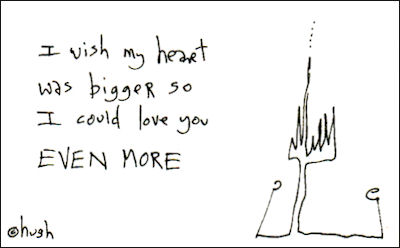 I wish my heart
was bigger so
I could love you
EVEN MORE
@hugh